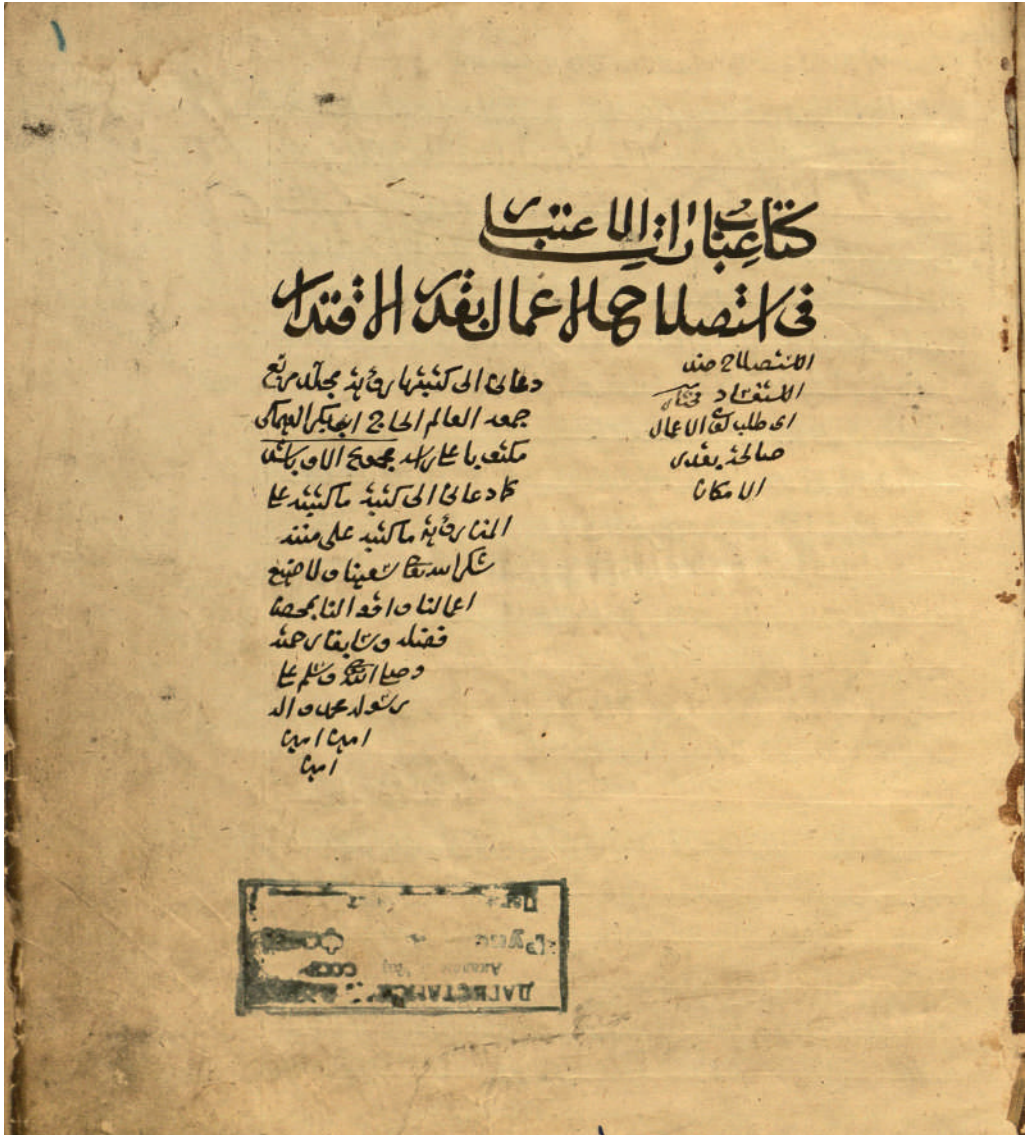 كتاب عبارات الاعتبار
فى استصلاح الاعمال بقدر الاقتدار
الاستصلاح ضد
الاستفساد
اى طلب كون الاعمال
صالحة بقدر
الامكان
دعانى الى كتبتها رؤية مجلد مرقع
جمعه العالم الحاج ابو بكر العيمكى
مكتوبا على راسه مجموع
كما دعانى الى كتبة ما كتبته على
المنار رؤية ما كتبه على متنه
شكر الله تعا سعينا ولا ضيع
اعمالنا واقوالنا بمحض
فضله وسابقة رحمته
وصلى الله وسلم على
رسوله محمد واله
امين امين
امين
ДАГЕСТАНСК
СССР